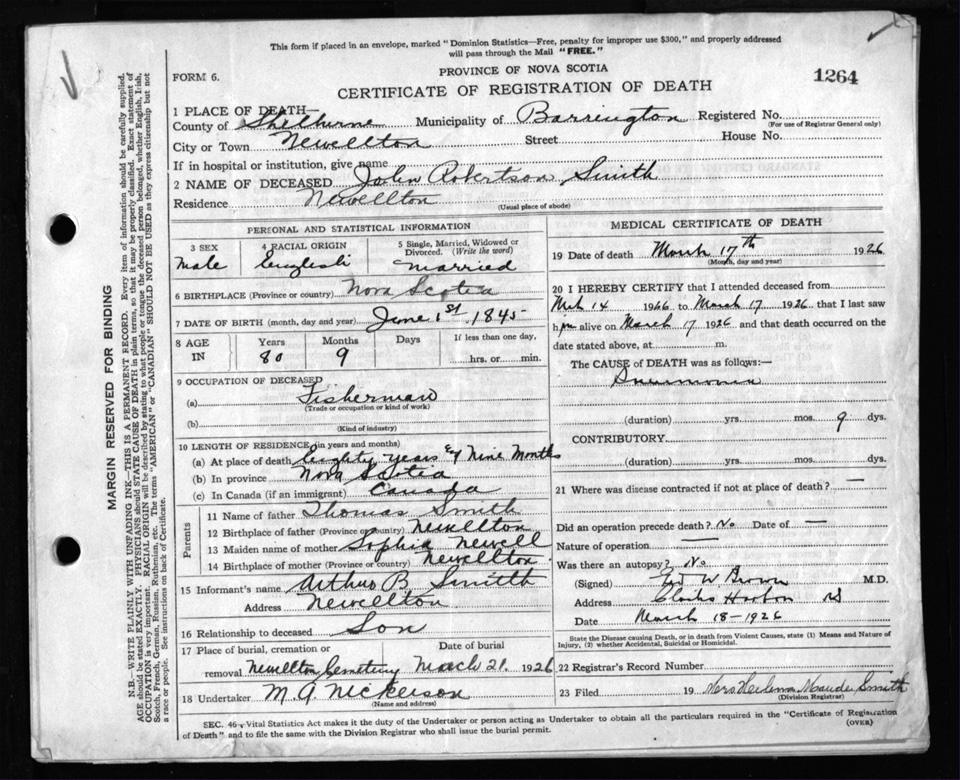 This form if placed in an envelope, marked "Dominion Statistics—Free, penalty for improper use $300," and properly addressed
will pass through the Mail "FREE."
PROVINCE OF NOVA SCOTIA
FORM 6.
CERTIFICATE OF REGISTRATION OF DEATH
1264
1 PLACE OF DEATH—
County of Shelburne Municipality of Barrington Registered No.
(For use of Registrar General only)
City or Town Newellton Street House No.
If in hospital or institution, give name
2 NAME OF DECEASED John Robertson Smith
Residence Newellton
(Usual place of abode)
PERSONAL AND STATISTICAL INFORMATION
3 SEX 4 RACIAL ORIGIN 5 Single, Married, Widowed or Divorced. (Write the word)
Male English Married
6 BIRTHPLACE (Province or country) Nova Scotia
7 DATE OF BIRTH (month, day and year) June 1st 1845
8 AGE IN Years Months Days If less than one day,
80 9 hrs. or min.
9 OCCUPATION OF DECEASED
(a) Fisherman
(Trade or occupation or kind of work)
(b)
(Kind of industry)
10 LENGTH OF RESIDENCE (in years and months)
(a) At place of death Eighty years & Nine Months
(b) In province Nova Scotia
(c) In Canada (if an immigrant) Canada
Parents
11 Name of father Thomas Smith
12 Birthplace of father (Province or country) Newellton
13 Maiden name of mother Sophia Newell
14 Birthplace of mother (Province or country) Newellton
15 Informant's name Arthur B Smith
Address Newellton
16 Relationship to deceased Son
17 Place of burial, cremation or Date of burial
removal Newellton Cemetery March 21 1926
18 Undertaker M. A Nickerson
(Name and address)
MEDICAL CERTIFICATE OF DEATH
19 Date of death March 17th 1926
(Month, day and year)
20 I HEREBY CERTIFY that I attended deceased from
Mch 14 1926 to March 17 1926 that I last saw
him alive on March 17 1926 and that death occurred on the
date stated above, at m.
The CAUSE of DEATH was as follows:—
Pneumonia
(duration) yrs. mos. 9 dys.
CONTRIBUTORY
(duration) yrs. mos. dys.
21 Where was disease contracted if not at place of death? —
Did an operation precede death? No Date of —
Nature of operation —
Was there an autopsy? No
(Signed) W Brown M.D.
Address Clarks Harbor NS
Date March 18-1926
State the Disease causing Death, or in death from Violent Causes, state (1) Means and Nature of
Injury, (2) whether Accidental, Suicidal or Homicidal.
22 Registrar's Record Number
23 Filed 19 Maude Smith
(Division Registrar)
SEC. 46, Vital Statistics Act makes it the duty of the Undertaker or person acting as Undertaker to obtain all the particulars required in the "Certificate of Registration
of Death" and to file the same with the Division Registrar who shall issue the burial permit.
(OVER)
MARGIN RESERVED FOR BINDING
N.B.—WRITE PLAINLY WITH UNFADING INK—THIS IS A PERMANENT RECORD. Every item of information should be carefully supplied.
AGE should be stated EXACTLY. PHYSICIANS should STATE CAUSE OF DEATH in plain terms, so that it may be properly classified. Exact statement of
OCCUPATION is very important. RACIAL ORIGIN will be described by stating to what people or tongue the deceased person belonged, whether English, Irish,
Scotch, French, German, Russian, Ruthenian, etc. The terms "AMERICAN" or "CANADIAN" SHOULD NOT BE USED as they express citizenship but not
a race or people. See instructions on back of Certificate.